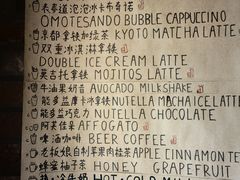 表参道泡沫冰卡布奇诺
OMOTESANDO BUBBLE CAPPUCCINO
京都拿铁加绿茶 KYOTO MATCHA LATTE
双重冰淇淋拿铁
DOUBLE ICE CREAM LATTE
莫吉托拿铁 MOJITOS LATTE
牛油果奶昔 AVOCADO MILKSHAKE
能多益摩卡冰拿铁 NUTELLA MACHA ICE LATTE
能多益巧克力 NUTELLA CHOCOLATE
阿芙佳朵 AFFOGATO
啤酒咖啡 BEER COFFEE
老板娘自制苹果肉桂茶 APPLE CINNAMON TE
蜂蜜柚子茶 HONEY GRAPEFRUIT